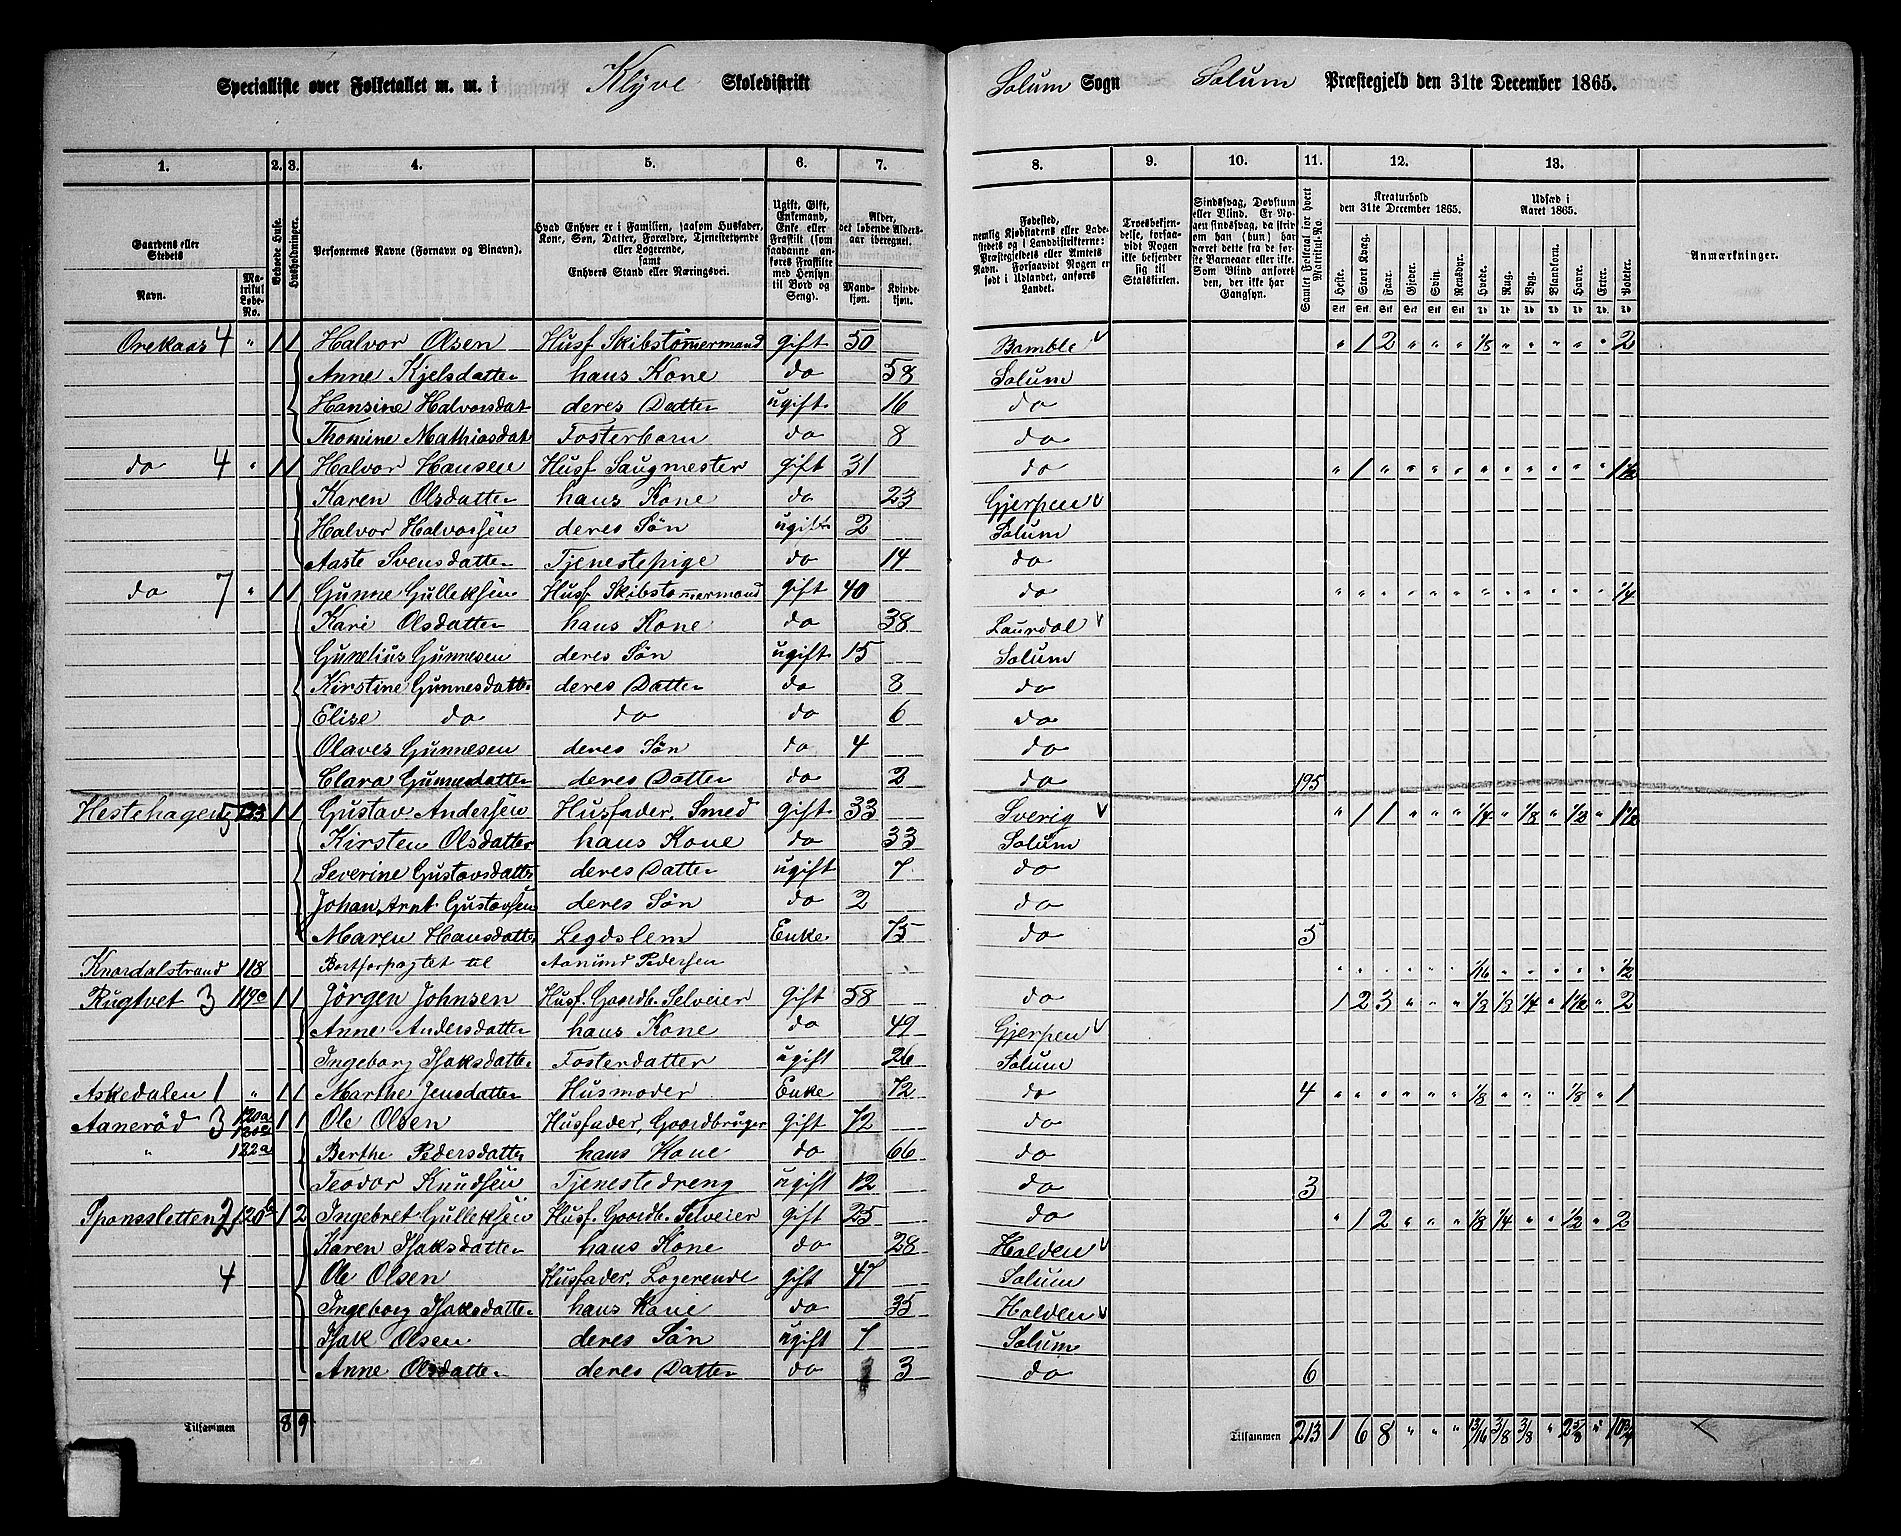 Specialliste over Folketallet m. m. i Klyve Skoledistrikt Solum Sogn Solum Præstegjeld den 31te December 1865.
1. 2. 3. 4. 5. 6. 7. 8. 9. 10. 11. 12. 13.
Gaardens eller Stedets Navn. Matrikul Løbe-No. Beboede Huse. Husholdninger. Personernes Navne (Fornavn og Binavn). Hvad Enhver er i Familien, saasom Husfader, Kone, Søn, Datter, Forældre, Tjenestetyende eller Logerende, samt Enhvers Stand eller Næringsvei. Ugift, Gift, Enkemand, Enke eller Fraskilt (som saadanne anføres Fraskilte med Hensyn til Bord og Seng). Alder, det løbende Alders-aar iberegnet. Mand-kjøn. Kvinde-kjøn.
Fødested, nemlig Kjøbstadens eller Ladestedets og i Landdistrikterne: Præstegjeldets eller Amtets Navn. Forsaavidt Nogen er født i Udlandet, anføres Landet. Troesbekjendelse, forsaavidt Nogen ikke bekjender sig til Statskirken. Sindssvag, Døvstum eller Blind. Er Nogen sindssvag, da skrives om han (hun) har været dette fra de første Barneaar eller ikke. Som Blind ansøres den, der ikke har Gangsyn. Samlet Folketal for hvert Matrikul-No. Kreaturhold den 31te December 1865. Heste. Stort Kvæg. Faar. Gjeder. Svin. Rensdyr. Udsæd i Aaret 1865. Hvede. Rug. Byg. Blandkorn. Havre. Erter. Poteter. Anmærkninger.
Orekaas 4 " 1 1 Halvor Olsen Husf Skibstømermand gift 50 Bamble " 1 2 " " " 1/8 " " " " " 2
Anne Kjelsdatter hans Kone do 58 Solum
Hansine Halvorsdat deres Datter ugift 16 do
Thomine Mathiasdat Fosterbarn do 8 do
do 4 " 1 1 Halvor Hansen Husf Saugmester gift 31 do " 1 " " " " " " " " " " 1 1/2
Karen Olsdatter hans Kone do 23 Gjerpen
Halvor Halvorsen deres Søn ugift 2 Solum
Aaste Svensdatter Tjenestepige do 14 do
do 7 " 1 1 Gunne Gulleksen Husf Skibstømermand gift 40 do " " " " " " " " " " " " 1/4
Kari Olsdatter hans Kone do 38 Laurdal
Gunelius Gunnesen deres Søn ugift 15 Solum
Kirstine Gunnesdatter deres Datter do 8 do
Elise do do do 6 do
Olaves Gunnesen deres Søn do 4 do
Clara Gunnesdatter deres Datter do 2 do 195
Hestehagen 5 1 1 Gustav Andersen Husfader, Smed gift 33 Sverig " 1 1 " " " 1/4 " 1/8 " 1/2 " 1 1/2
Kirsten Olsdatter hans Kone do 33 Solum
Severine Gustavsdatter deres Datter ugift 7 do
Johan Arnt Gustavsen deres Søn do 2 do
Maren Hansdatter Legdslem Enke 75 do 5
Knardalstrand 118 Bortforpagtet til Aanund Pedersen " " " " " " 1/16 " " " " " 1/2
Rugtvet 3 119a 1 1 Jörgen Johnsen Husf. Gaardb. Selveier gift 58 do 1 2 3 " " " 1/3 1/3 1/4 " 1 1/2 " 2
Anne Andersdatter hans Kone do 49 Gjerpen
Ingeborg Isaksdatter Fosterdatter ugift 26 Solum
Askedalen 1 " 1 1 Marthe Jensdatter Husmoder Enke 72 do 4 " " " " " " 1/8 " " " 1/8 " 1
Aanerød 3 120a 1 1 Ole Olsen Husfader, Gaardbruger gift 72 do
" 122a Berthe Pedersdatter hans Kone do 66 do
Teodor Knudsen Tjenestedreng ugift 12 do 3
Sponssletten 2 120b 1 2 Ingebret Gulleksen Husf. Gaardb. Selveier gift 25 do " 1 2 " " " 1/8 1/4 " " 1/2 " 2
Karen Isaksdatter hans Kone do 28 Holden
4 Ole Olsen Husfader, Logerende gift 47 Solum
Ingeborg Isaksdatter hans Kone do 35 Holden
Isak Olsen deres Søn ugift 7 Solum
Anne Olsdatter deres Datter do 3 do 6
Tilsammen 8 9 Tilsammen 213 1 6 8 " " " 13/16 3/8 " 2 5/8 " 10 3/4